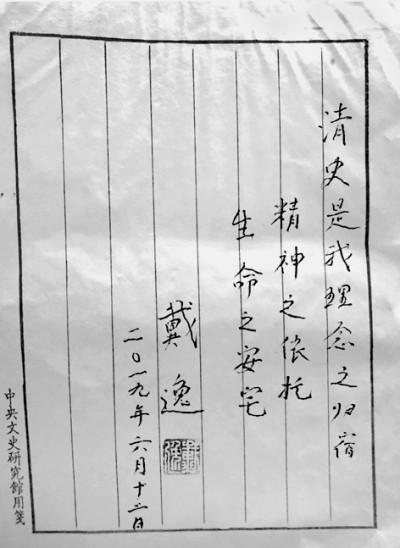 清史是我理念之归宿
精神之依托
生命之安宅
戴逸
二〇一九年六月十二日
中央文史研究館用箋